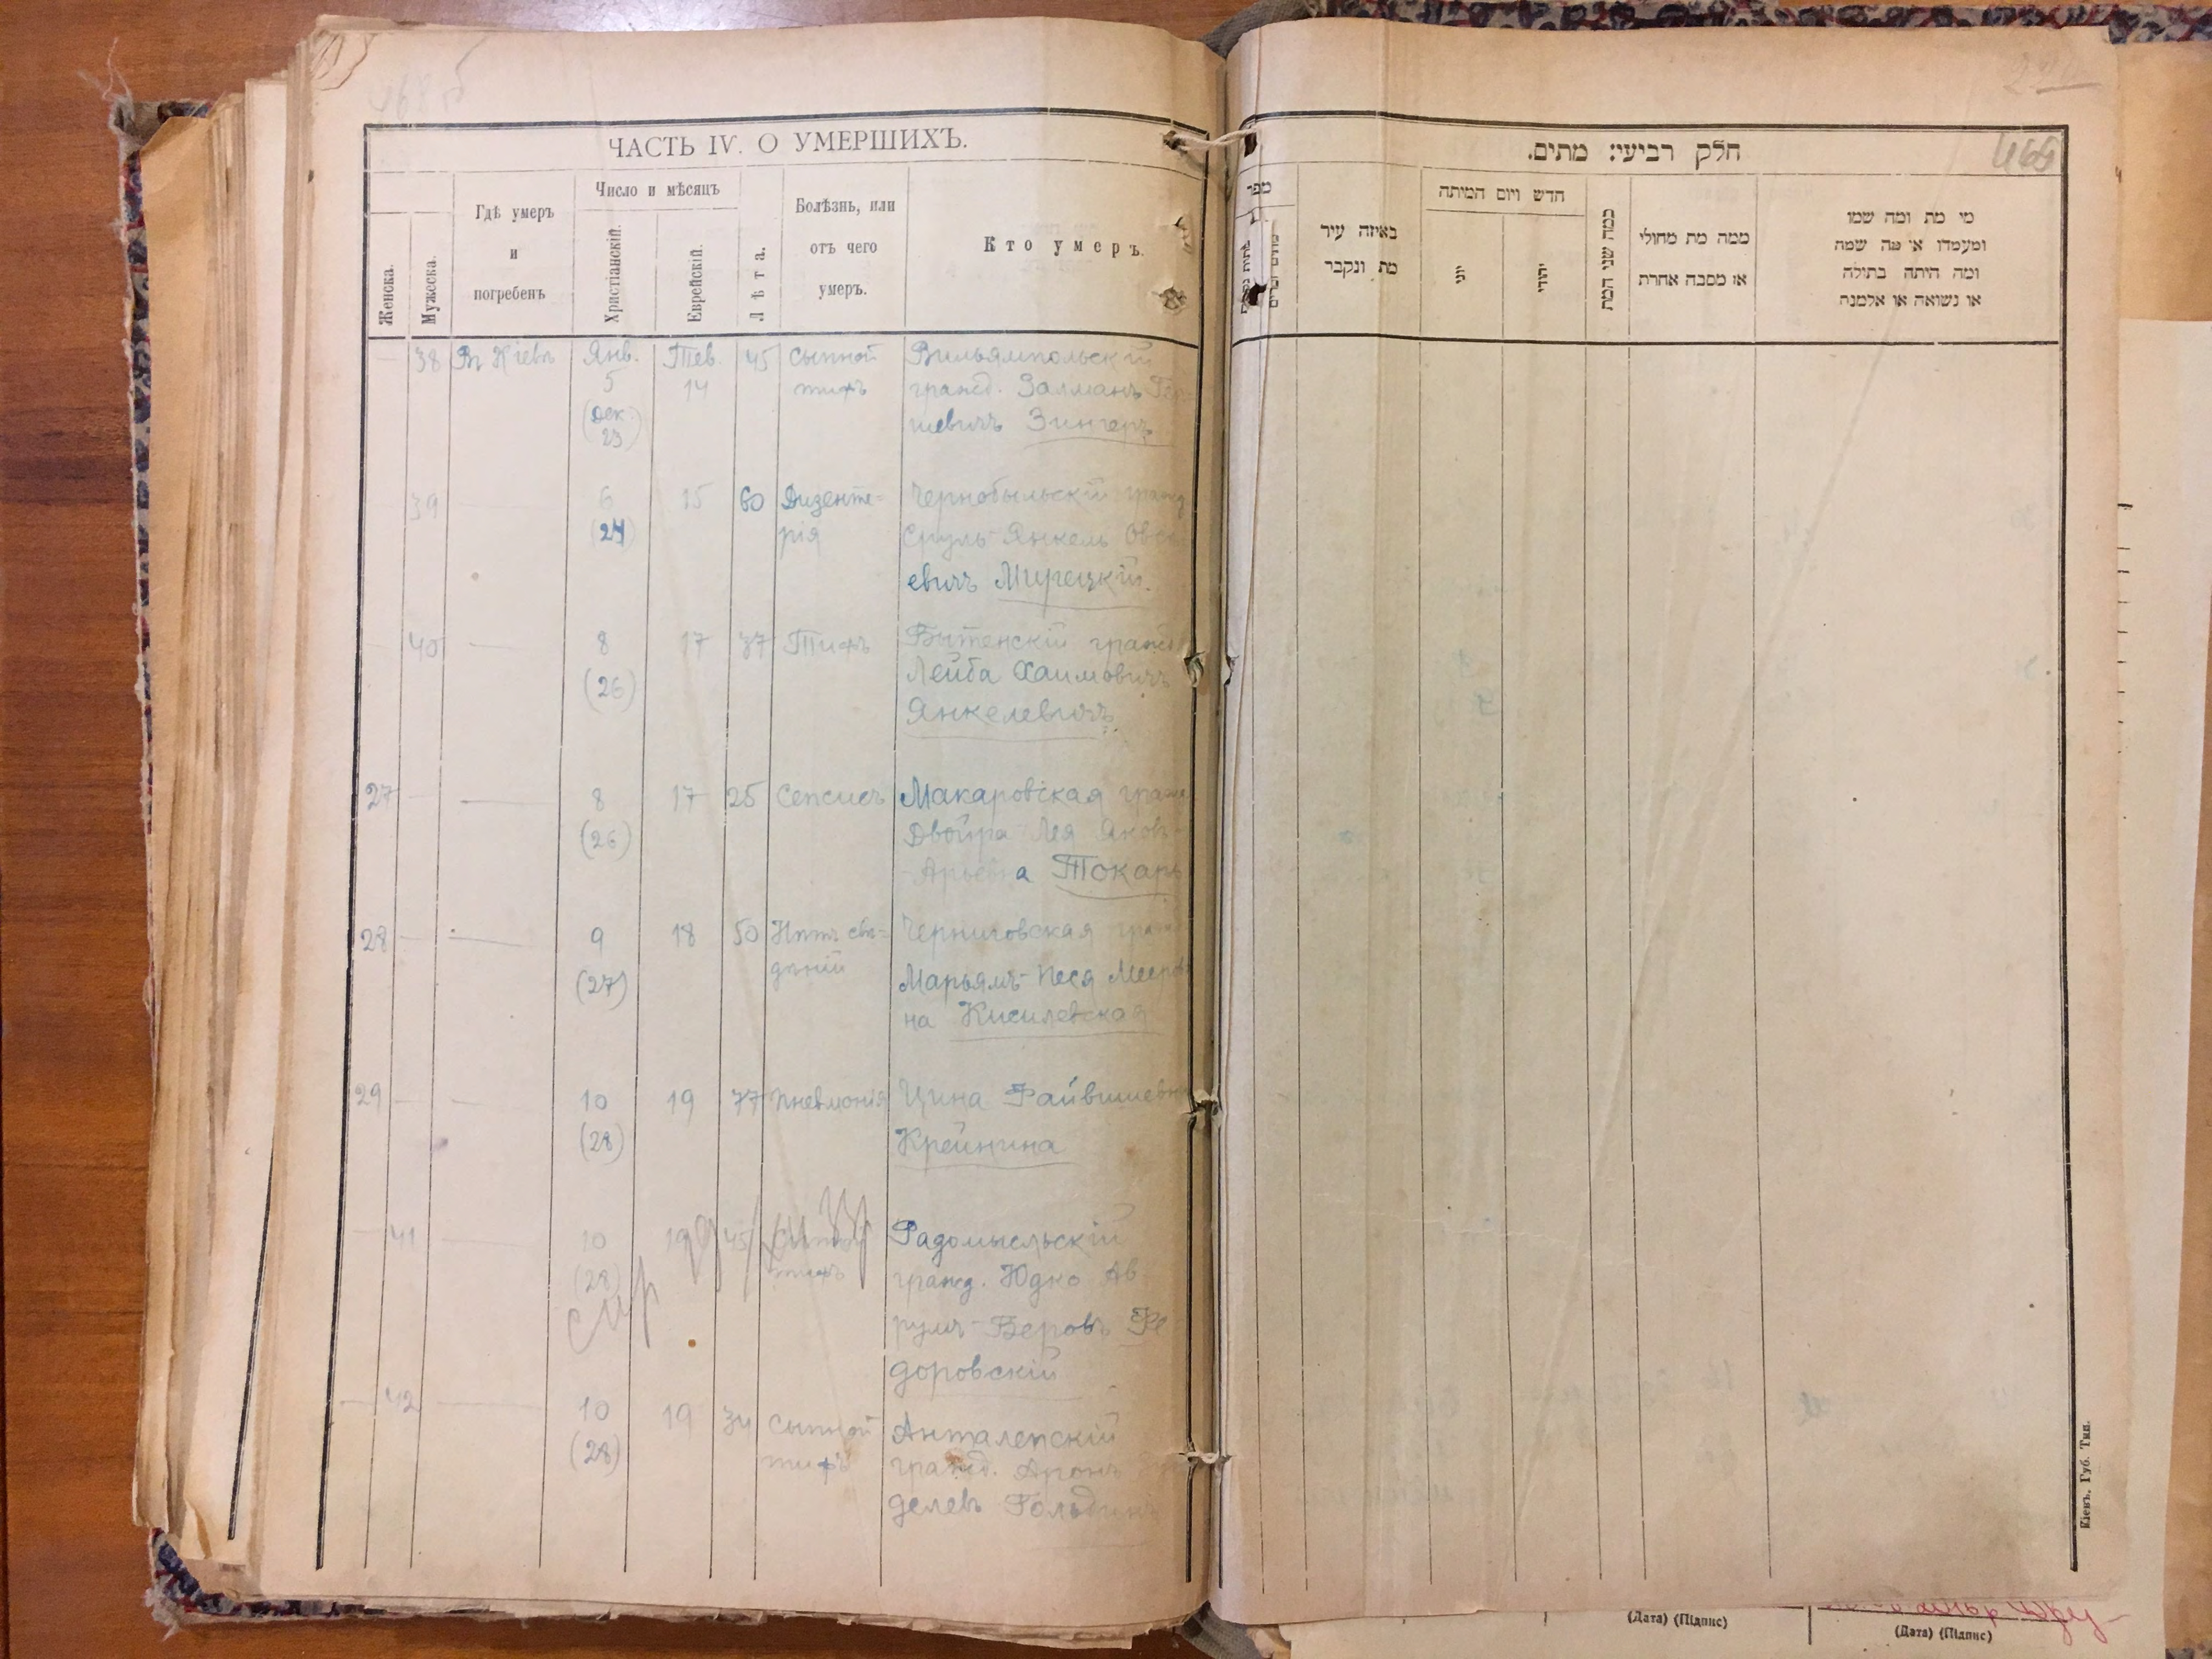 468 б
ЧАСТЬ IV. О УМЕРШИХЪ.
Женска.
Мужеска.
Гдѣ умеръ
и
погребенъ
Число и мѣсяцъ
Христіанскій.
Еврейскій.
Лѣта.
Болѣзнь, или
отъ чего
умеръ.
Кто умеръ.
— 38 Въ Кіевѣ Янв. Тев. 45 Сыпной Вильямпольскій
5 14 тифъ гражд. Залманъ
(Дек. шевичъ Зингеръ
23)
39 — 6 15 60 Дизенте- Чернобыльскій гражд
(24) рія Сруль-Янкель
евичъ Мирецкій.
— 40 — 8 17 37 Тифъ Бытенскій гражд
(26) Лейба Хаимовичъ
Янкелевичъ
27 — — 8 17 25 Сепсисъ Макаровская
(26) Двойра Лея Яковъ-
Арьевна Токарь
28 — — 9 18 50 Нѣтъ свѣ- Черниговская
(27) дѣній Марьямъ-Песя Мееров
на Кисилевская
29 — — 10 19 77 Пневмонія Цина Файвишевна
(28) Крейнина
— 41 — 10 19 45 Сыпной Радомысльскій
(28) тифъ гражд. Юдко Ав
румъ-Беровъ Фе
доровскій
— 42 — 10 19 34 Сыпной Анталепскій
(28) тифъ гражд. Аронъ
делевъ Гольдинъ
חלק רביעי: מתים.
469
מספר
באיזה עיר
מת ונקבר
חדש ויום המיתה
יוני
יהודי
כמה שני המת
ממה מת מחולי
או מסבה אחרת
מי מת ומה שמו
ומעמדו או מה שמה
ומה היתה בתולה
או נשואה או אלמנה
Кіевъ, Губ. Тип.
(Дата) (Підпис)
(Дата) (Підпис)